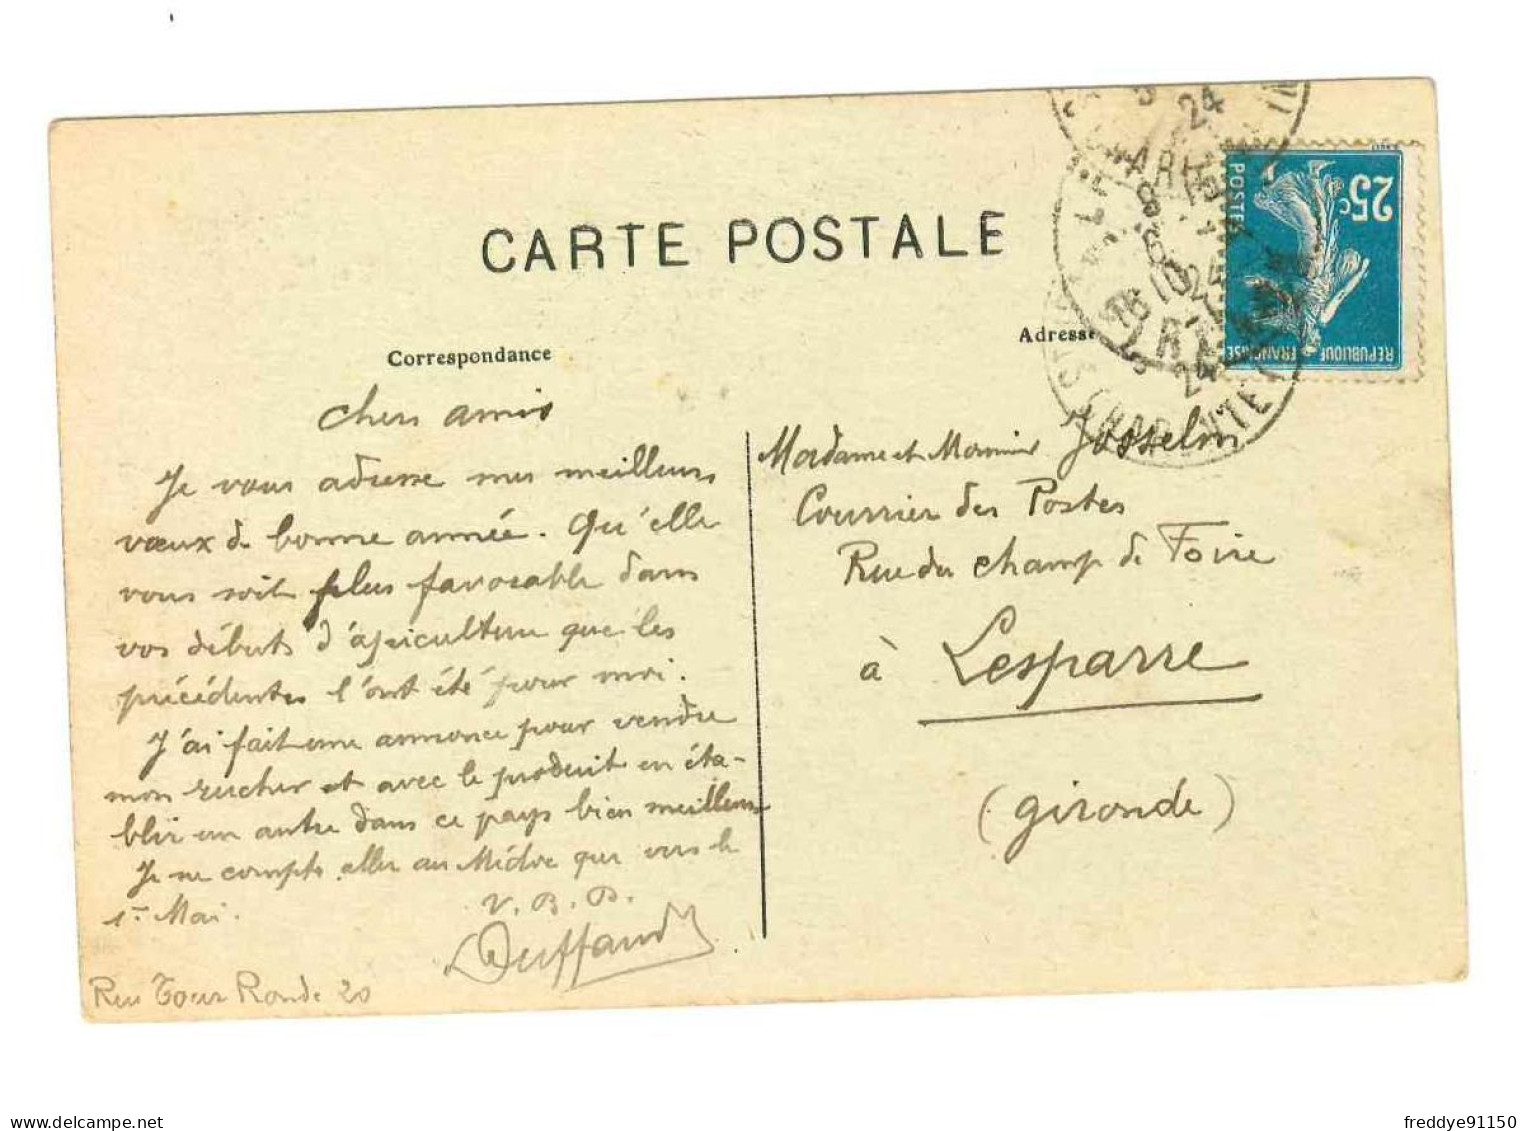 CARTE POSTALE
Correspondance
Adresse
25c
POSTES
REPUBLIQUE FRANÇAISE
24
CHARENTE
chers amis
Je vous adresse mes meilleurs
vœux de bonne année. Qu'elle
vous soit plus favorable dans
vos débuts d'apiculture que les
précédentes l'ont été pour moi.
J'ai fait une annonce pour vendre
mon rucher et avec le produit en éta-
blir un autre dans ce pays bien meilleur
Je ne compte aller au Médoc que vers le
1er Mai.
V. B. D.
Duffaud
Rue Tour Ronde 20
Madame et Monsieur Josselin
Courrier des Postes
Rue du champ de Foire
à Lesparre
(Gironde)
freddye91150